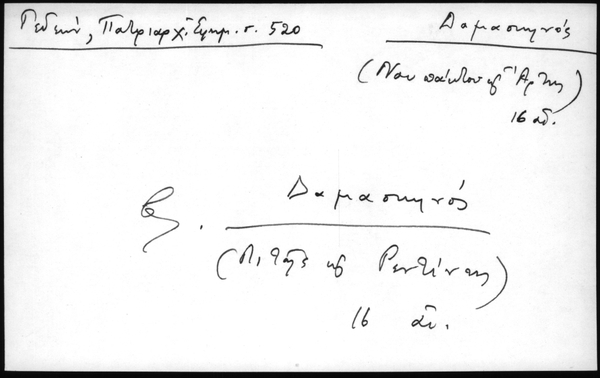 Γεδεών, Πατριαρχ. Εφημ. σ. 520
Δαμασκηνός
(Ναυπάκτου κ Άρτης)
16 αι.
Βλ. Δαμασκηνός
(Λιτζάς κ Ρεντίνης)
16 αι.